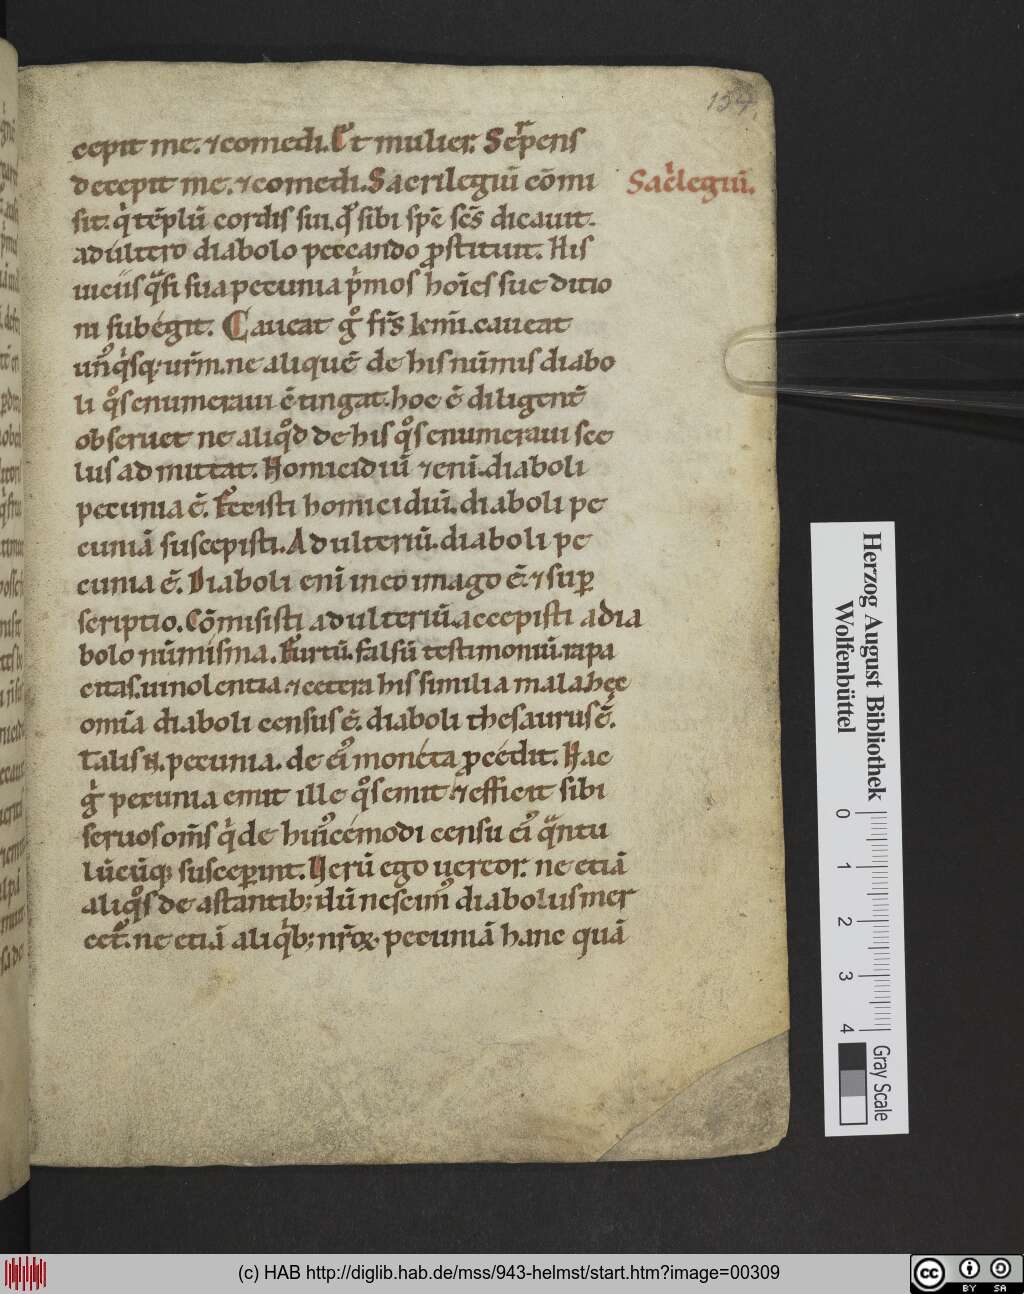 154.
cepit me. ⁊ comedi. Et mulier. Serpens
decepit me. ⁊ comedi. Sacrilegiū cōmi
Sacͥlegiū.
sit. qͥ tēplū cordis sui. qd̾ sibi spē sc̄s dicauit.
adultero diabolo peccando ꝓstituit. His
uiciis qᵃsi sua pecunia pͥmos hoīes sue ditio
ni subegit. Caueat gͦ fr̄s kmī. caueat
un̾qͥsq; ur̄m. ne aliquē de his nūmis diabo
li qͦs enumeraui ctingat. hoc ē diligent̄
obseruet ne aliqͦd de his qͦs enumeraui sce
lus admittat. Homicidiū ⁊enī. diaboli
pecunia ē. Fecisti homicidiū. diaboli pe
cuniā suscepisti. Adulteriū. diaboli pe
cunia ē. Diaboli enī in eo imago ē. ⁊ suꝑ
scriptio. Cōmisisti adulteriū. accepisti a dia
bolo nūmisma. Furtū. falsū testimoniū. rapa
citas. uinolentia. ⁊ cetera his similia mala hęc
omīa diaboli census ē. diaboli thesaurus ē.
Talis N. pecunia. de ei̾ moneta ꝓcedit. Hac
gͥ pecunia emit ille qͦs emit. ⁊ efficit sibi
seruos om̄s qͥ de hui̾cemodi censu ei̾ qᵃntu
lūcūq; susceꝑint. Herū ego uereor. ne etiā
aliqͦs de astantib; dū nescim̾ diabolus mer
cet̾. ne etiā aliqͥb; nr̄oꝝ. pecuniā hanc quā
Herzog August Bibliothek
Wolfenbüttel
0 1 2 3 4
Gray Scale
(c) HAB http://diglib.hab.de/mss/943-helmst/start.htm?image=00309
cc BY SA